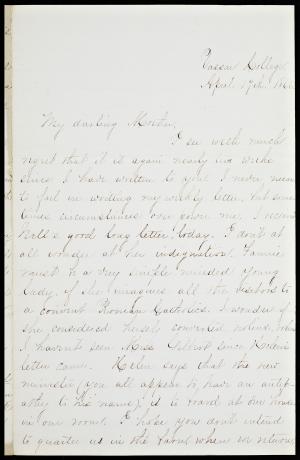 Vassar College
April 17th. 186
My darling Mother,
I see with much
regret that it is again nearly two weeks
since I have written to you. I never mean
to fail in writing my weekly letter, but some
times circumstances over power me. I received
Bell's good long letter today. I don't at
all wonder at her indignation. Fannie
must be a very simple minded young
lady, if she imagines all the visitors to
a convent Roman Catholics. I wonder if
she considered herself converted
I haven't seen Miss since Helen's
letter came. Helen says that the new
minister (you all appear to have an antip-
athy to his name) is to board at our house
in our room. I hope you don't intend
to quarter us in the when we return